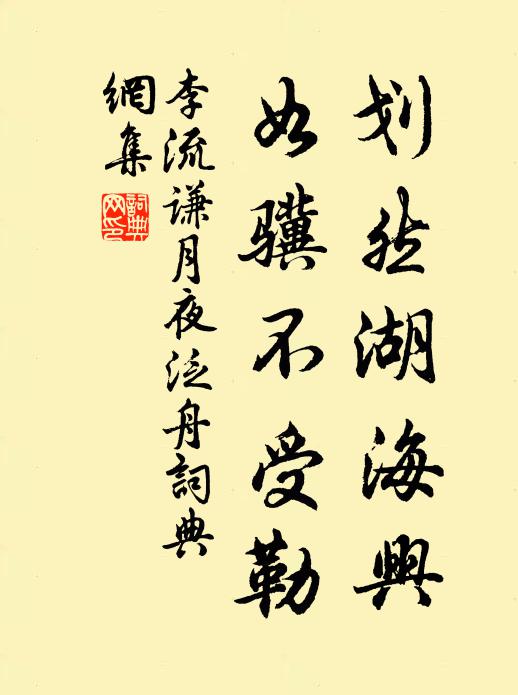 划然湖海興
如驥不受勒
李流谦月夜泛舟詞典
網集
詞典网印